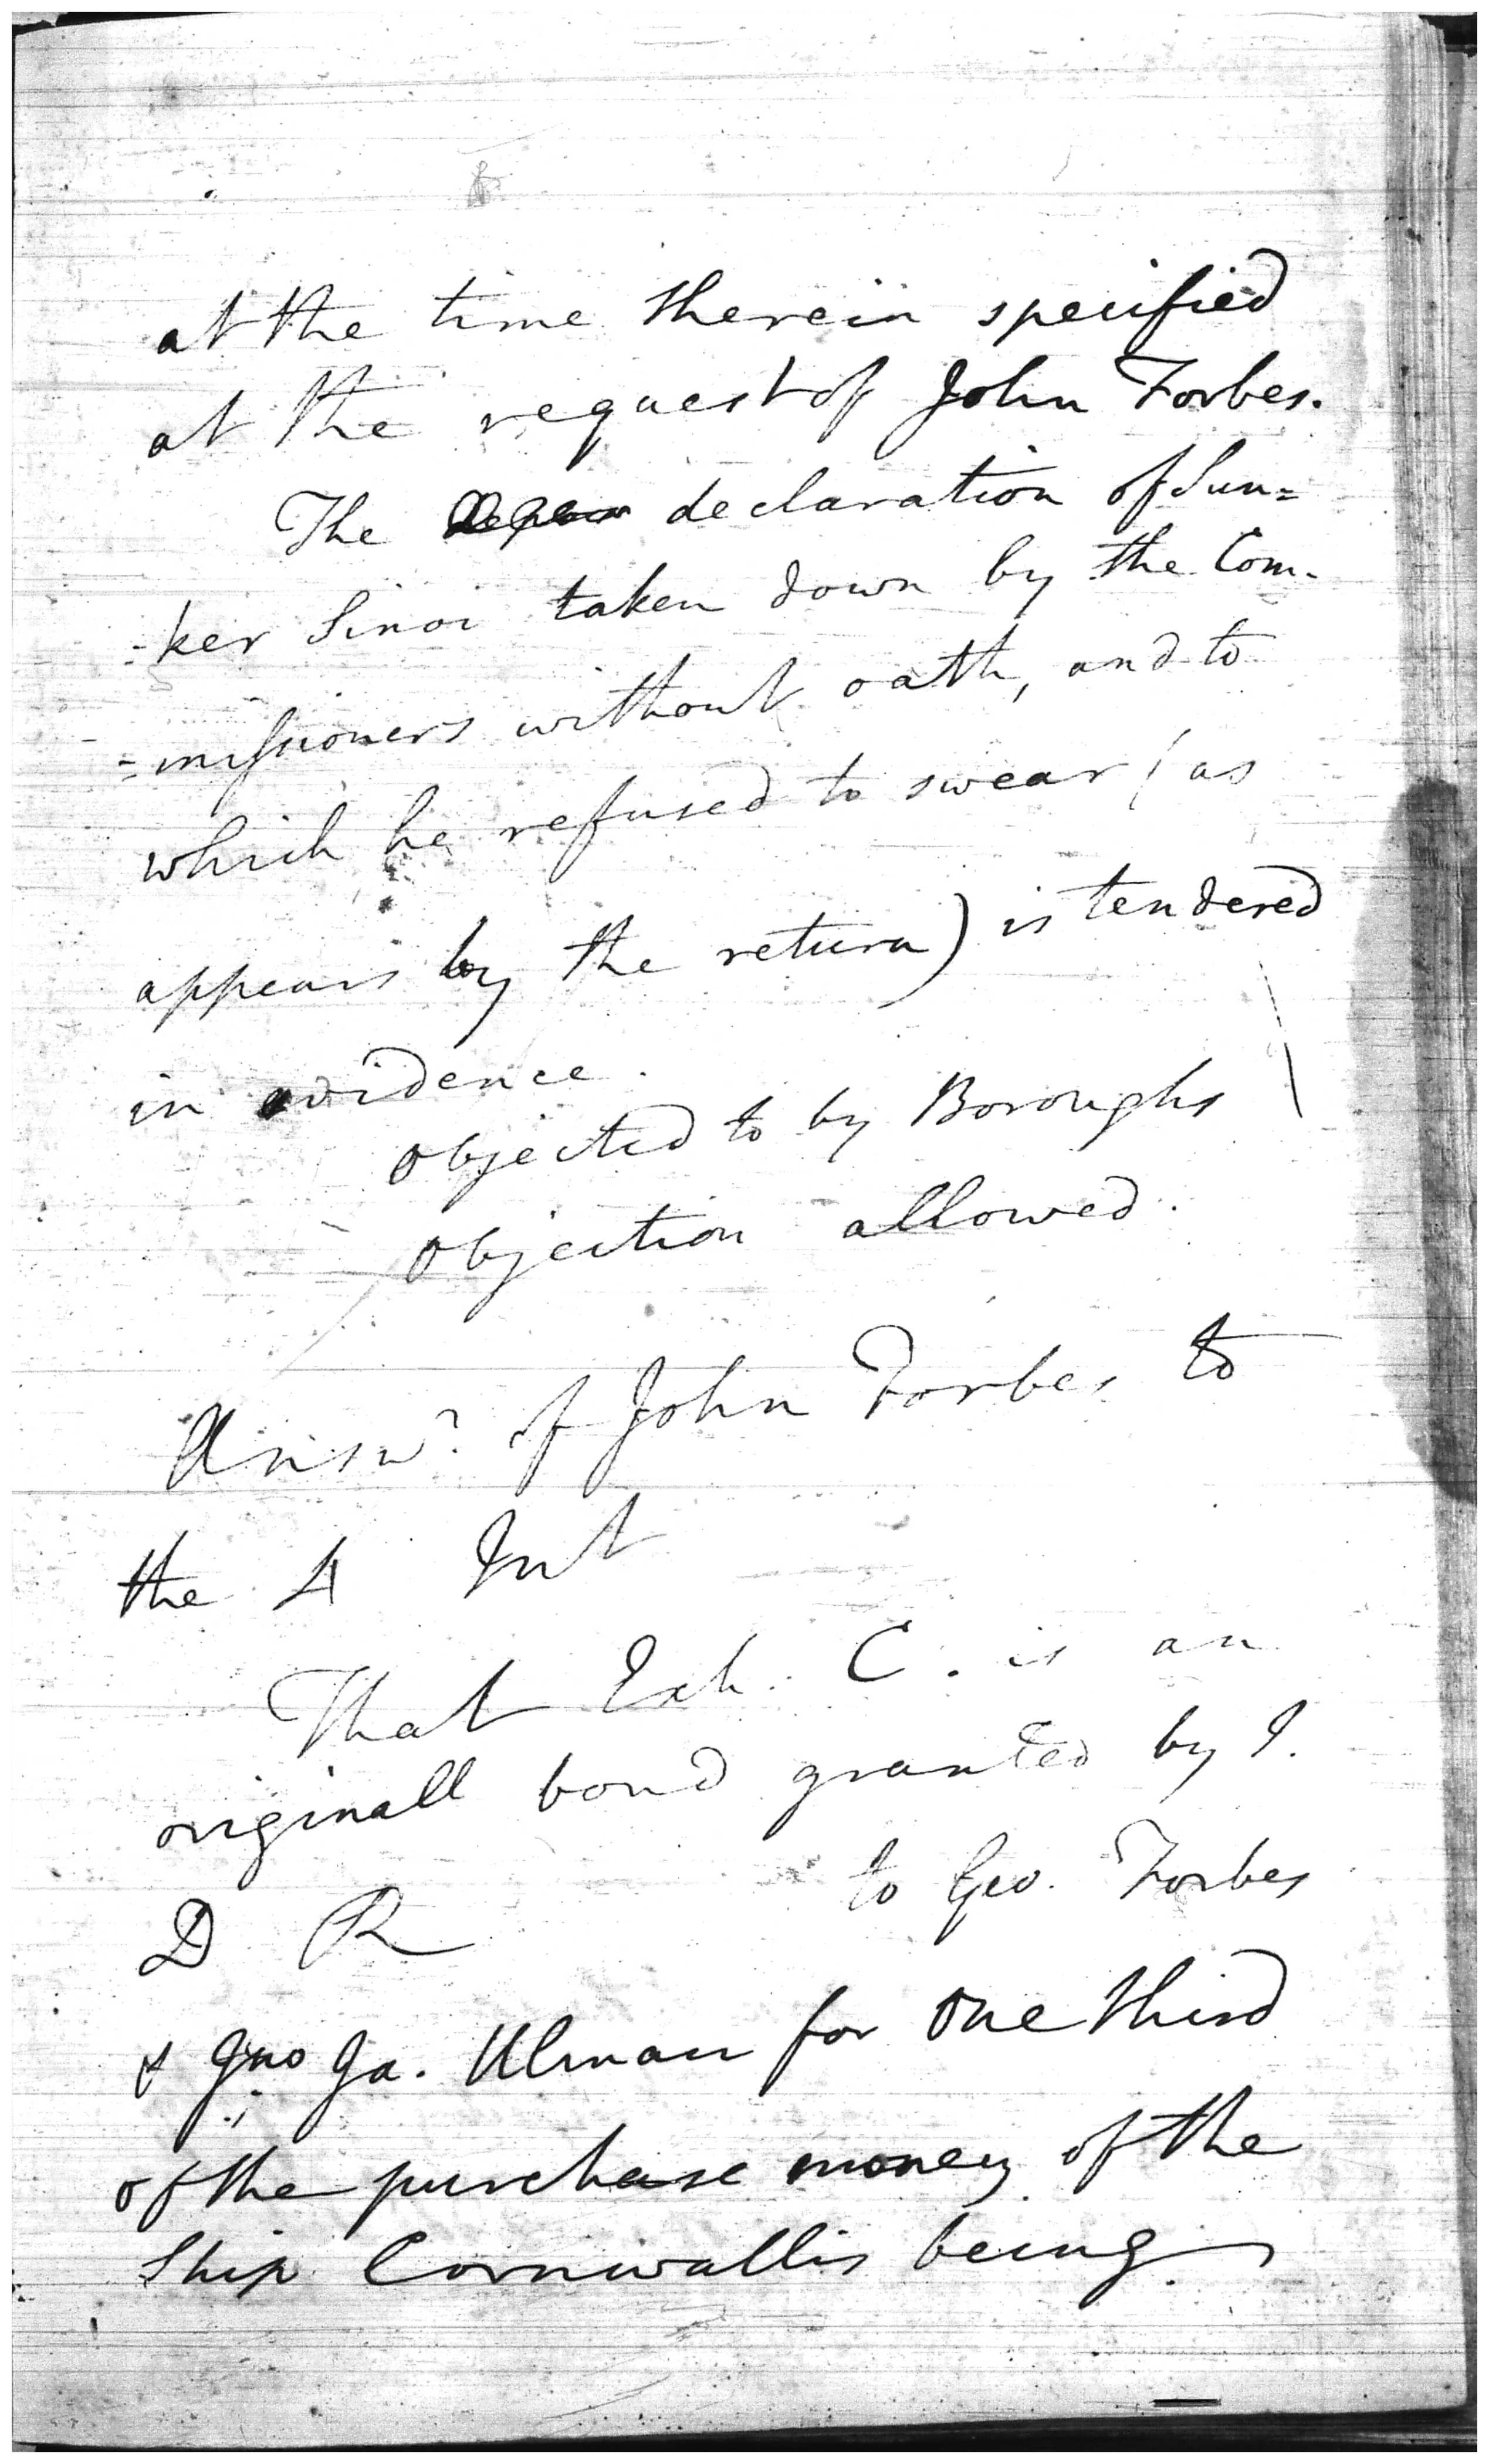 at the time therein specified
at the request of John Forbes.
The declaration of Sun=
=ker Sinoi taken down by the Com-
=missioners without oath, and to
which he refused to swear (as
appears by the return) is tendered
in evidence.
objected to by Boroughs
objection allowed.
Answr. of John Forbes to
the 4 Int
That Exh. C. is an
originall bond granted by I.
D R to Geo. Forbes
& Jno Ja. Ulman for one third
of the purchase money of the
Ship Cornwallis being